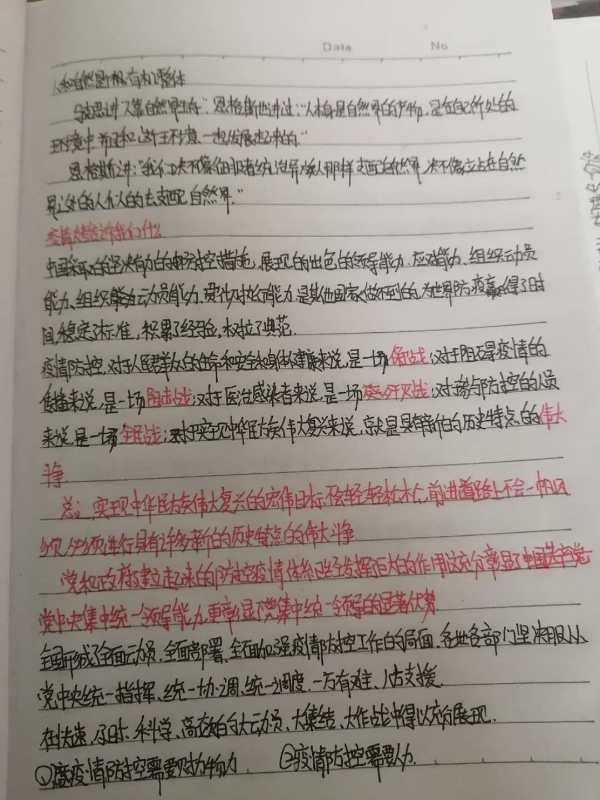 Date No
人和自然是一个有机整体
马克思讲人靠自然界生存；恩格斯也讲过："人本身是自然界的产物，是在自己所处的
环境中并和这个环境一起发展起来的。"
恩格斯讲："我们决不像征服者统治异族人那样支配自然界，决不像站在自然
界之外的人似的去支配自然界。"
疫情大考告诉我们什么
中国采取的坚决有力的防控措施，展现的出色的领导能力、应对能力、组织动员
能力、贯彻执行能力是其他国家做不到的，为世界防疫赢得了时
间，稳定了标准，积累了经验，树立了典范。
疫情防控，对于人民群众的生命和安全和身体健康来说，是一场保卫战；对于阻碍疫情的
传播来说，是一场阻击战；对于医治感染者来说，是一场歼灭战；对于参与防控的人员
来说，是一场全民战；对于实现中华民族伟大复兴来说，是具有新的历史特点的伟大
斗争
总：实现中华民族伟大复兴的宏伟目标，不会轻轻松松，前进道路上不会一帆风
顺，必须进行具有许多新的历史特点的伟大斗争
党和政府建立起来的防控疫情体系已经发挥巨大的作用，这充分彰显了中国共产党
党中央集中统一领导能力，更彰显了党集中统一领导的显著优势
全国形成了全面动员，全面部署，全面加强疫情防控工作的局面，各地各部门坚决服从
党中央统一指挥、统一协调、统一调度，一方有难、八方支援
在快速、及时、科学、高效的大动员、大集结、大作战中得以充分展现.
①疫情防控需要财力物力 ②疫情防控需要人力